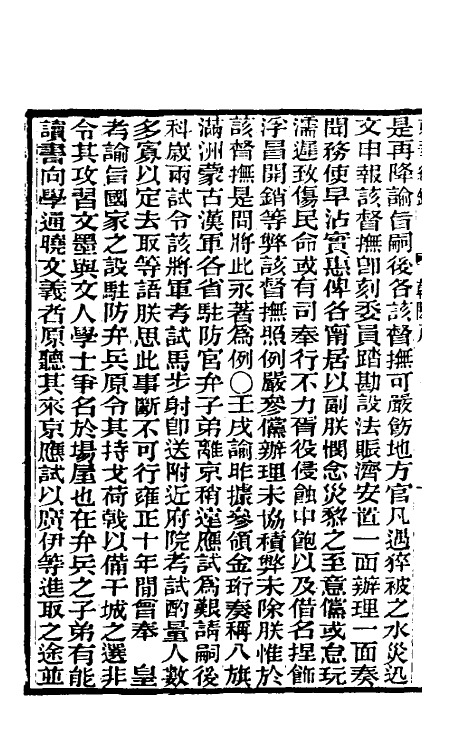 是再降諭旨嗣後各該督撫可嚴飭地方官凡遇猝被之水災迅
文申報該督撫卽刻委員踏勘設法賬濟安置一面辦理一面奏
聞務使早沾實惠俾各甯居以副朕憫念災黎之至意儻或怠玩
濡遲致傷民命或有司奉行不力胥役侵蝕中飽以及借名捏飾
浮冒開銷等弊該督撫照例嚴參儻辦理未協積弊未除朕惟於
該督撫是問將此永著爲例○壬戌諭昨據參領金珩奏稱八旗
滿洲蒙古漢軍各省駐防官弁子弟離京稍遠應試爲艱請嗣後
科歲兩試令該將軍考試馬步射卽送附近府院考試酌量人數
多寡以定去取等語朕思此事斷不可行雍正十年閒曾奉　皇
考諭旨國家之設駐防弁兵原令其持戈荷戟以備干城之選非
令其攻習文墨與文人學士爭名於場屋也在弁兵之子弟有能
讀書向學通曉文義者原聽其來京應試以廣伊等進取之途並